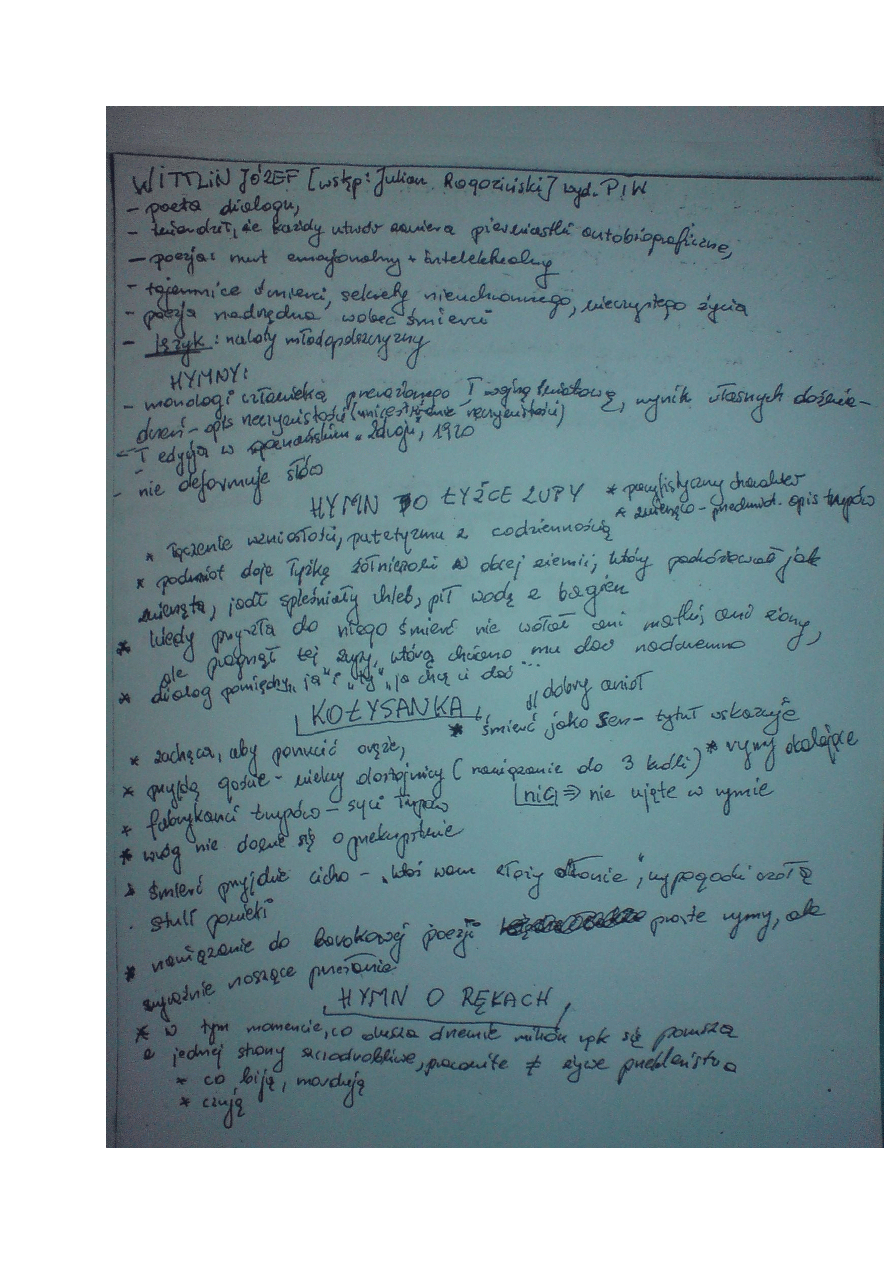 WITTLIN JÓZEF [wstęp: Julian Rogoziński] wyd. PIW
- poeta dialogu,
- twierdził, że każdy utwór zawiera pierwiastki autobiograficzne,
- poezja: nurt emocjonalny + intelektualny
- tajemnice śmierci, sekrety nieuchronnego, wieczystego życia
- poezja nadrzędna wobec śmierci
- język: naloty młodopolszczyzny
HYMNY:
- monologi człowieka przerażonego I wojną światową, wynik własnych doświa-
dczeń - opis rzeczywistości rzeczywistości)
- I edycja w poznańskim "Zdroju", 1920
- nie deformuje słów
HYMN DO ŁYŻCE ZUPY * pacyfistyczny charakter
* opis trupów
* łączenie wzniosłości, patetyzmu z codziennością
* podmiot daje łyżkę żołnierzowi w obcej ziemii, który podróżował jak
zwierzęta, jadł spleśniały chleb, pił wodę z bagien
* kiedy przyszła do niego śmierć nie wołał ani matki, ani żony,
ale pragnął tej zupy, którą chciano mu dać nadaremno
* dialog pomiędzy "ja" i "ty", "ja chcę ci dać..."
KOŁYSANKA dobry anioł
* śmierć jako sen - tytuł wskazuje
* zachęca, aby porzucić oręże,
* przyjdą goście - wielcy dostojnicy (nawiązanie do 3 króli) * rymy okalające
* fabrykanci trupów - syci trupów nic => nie ujęte w rymie
* wróg nie
* śmierć przyjdzie cicho - "ktoś wam złoży dłonie", wypogodzi czoła
stuli powieki
* nawiązanie do barokowej poezji proste rymy, ale
wyraźnie noszące przesłanie
HYMN O RĘKACH
* w tym momencie, co dusza drzemie milion rąk się porusza
z jednej strony szczodrobliwe, pracowite ≠ żywe przekleństwa
* co biją, mordują
* czują